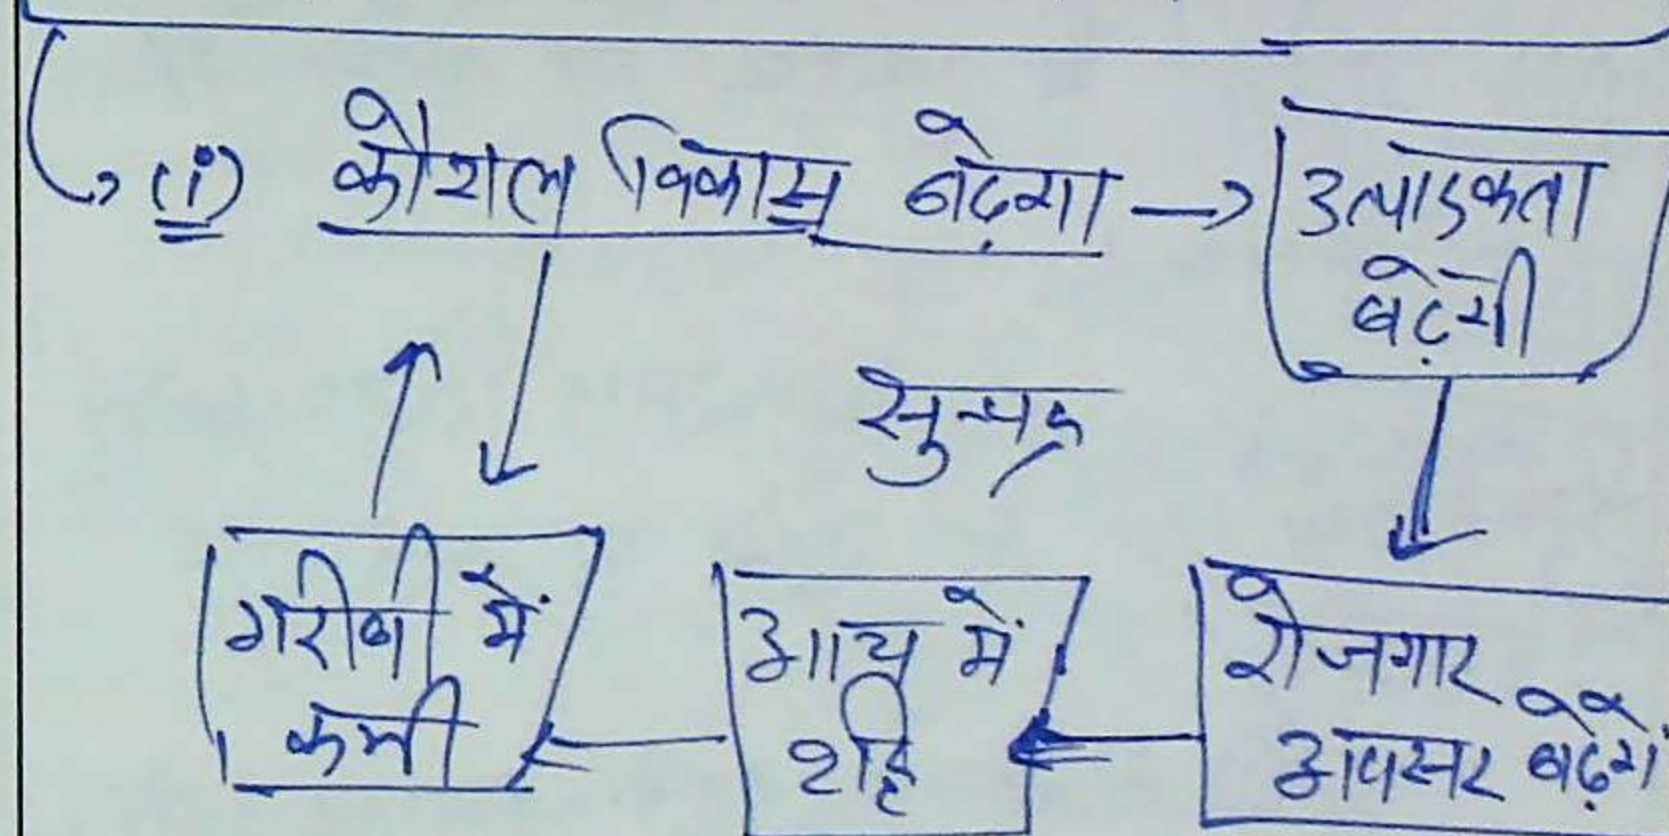 (i) कौशल विकास बढ़ेगा → उत्पादकता
बढ़ेगी
सुचक्र
गरीबी में
कमी
आय में
वृद्धि
रोजगार
अवसर बढ़ेगें